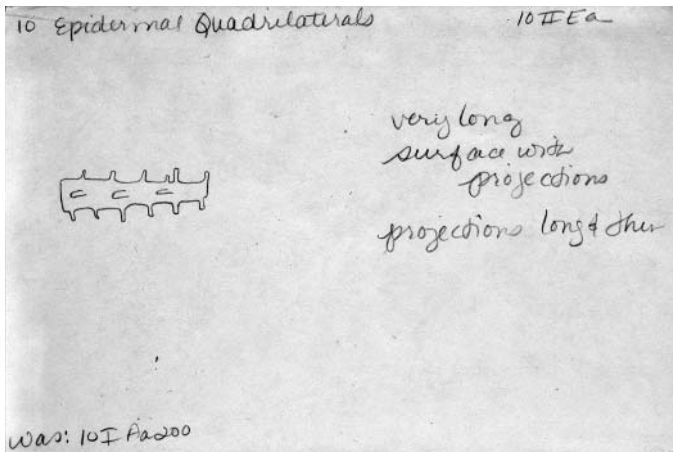 10 Epidermal Quadrilaterals 10 II Ea
very long
surface with
projections
projections long & thin
was: 10 I Aa200